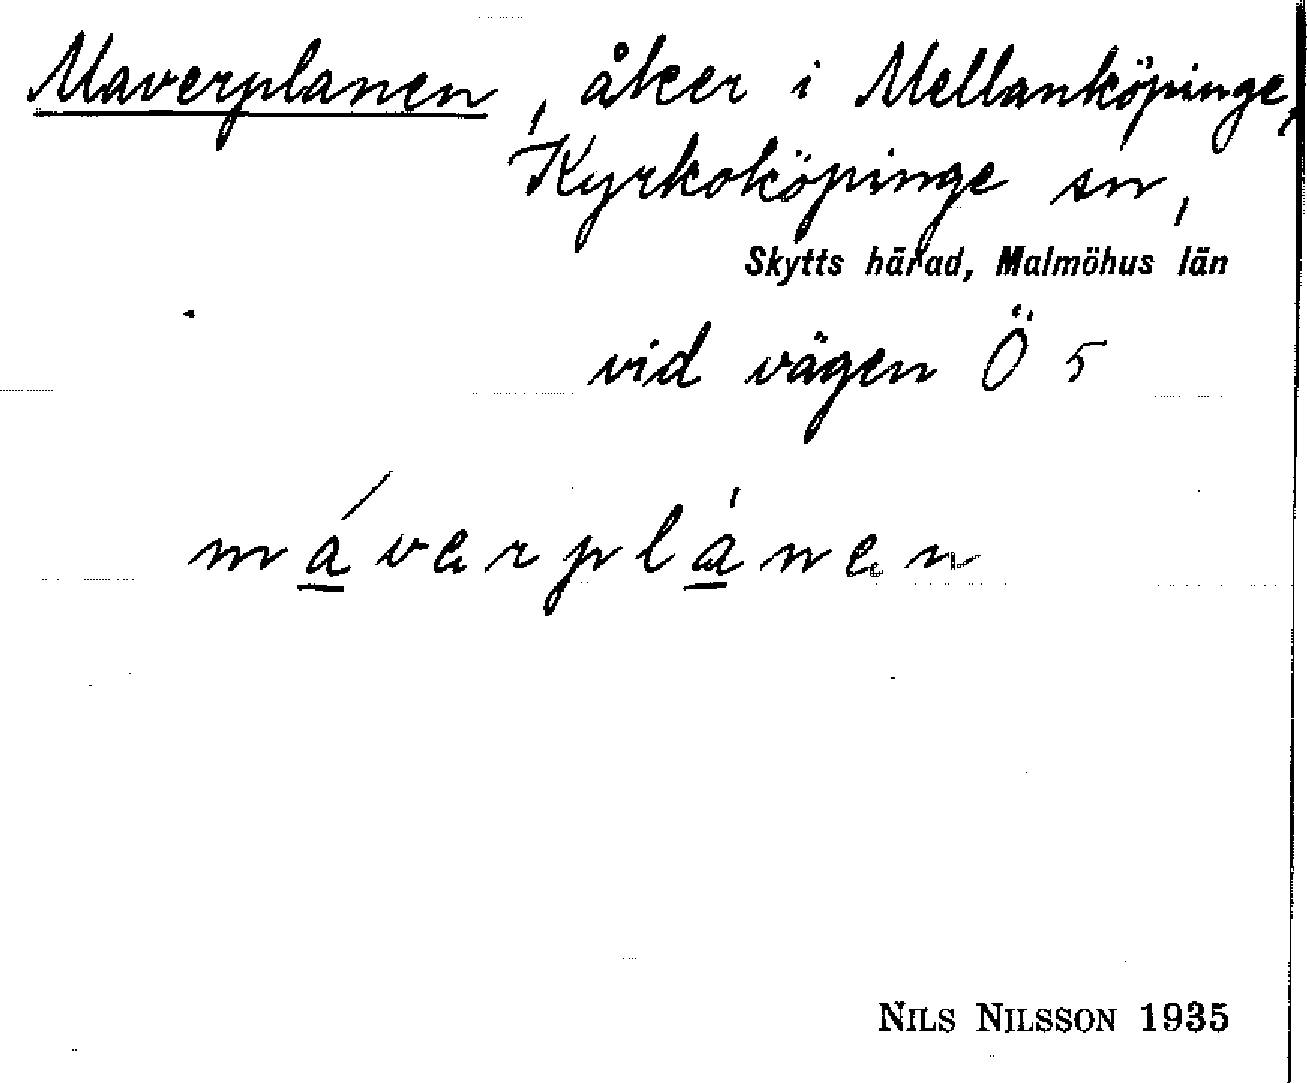 Maverplanen, åker i Mellanköpinge,
Kyrkoköpinge sn,
Skytts härad, Malmöhus län
vid vägen Ö 5
máverplánen
NILS NILSSON 1935